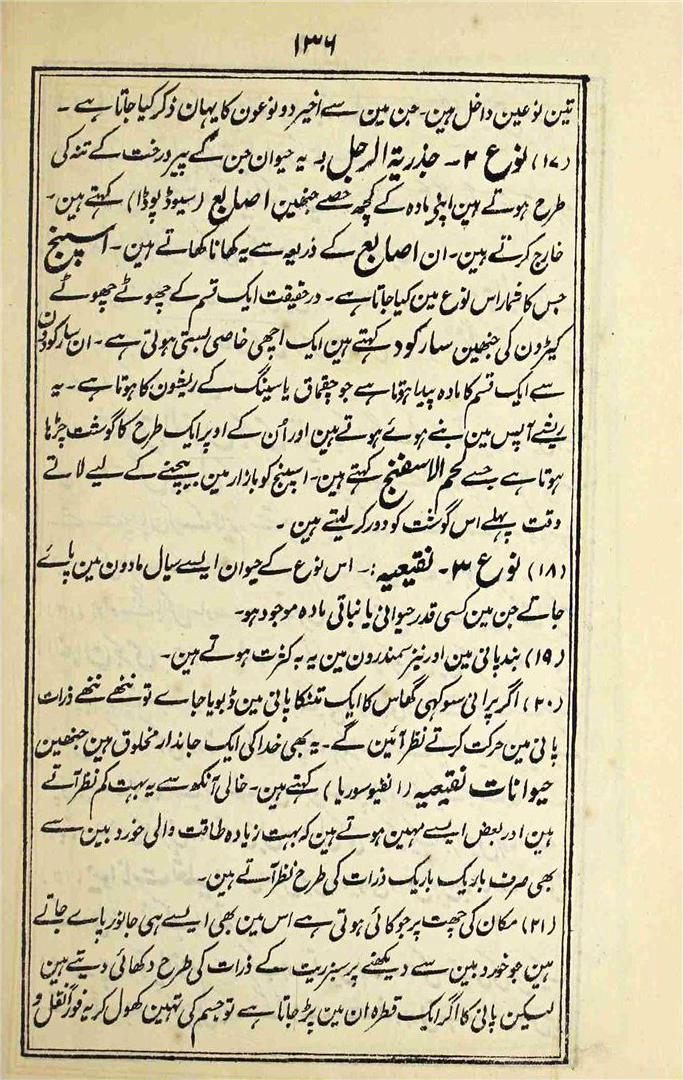 ۱۳۶
تین نوعین داخل ہین۔ جن مین سے اخیر دو نوعون کا یہان ذکر کیا جاتا ہے ۔
(۱۷) نوع ۲۔ جذریۃ الرجل :۔ یہ حیوان جن کے پیر درخت کے تنہ کی
طرح ہوتے ہین اپنی مادہ کے کچھ حصے جنھین اصابع (سیوڈوپوڈا) کہتے ہین۔
خارج کرتے ہین۔ ان اصابع کے ذریعہ سے یہ کھانا کھاتے ہین ۔ اسپنج
جس کا شمار اس نوع مین کیا جاتا ہے ۔ درحقیقت ایک قسم کے چھوٹے چھوٹے
کیڑون کی جنھین سارکود کہتے ہین ایک اچھی خاصی بستی ہوتی ہے ۔ ان سارکودون
سے ایک قسم کا مادہ پیدا ہوتا ہے جو چقماق یا سینگ کے ریشون کا ہوتا ہے ۔ یہ
ریشے آپس مین بنے ہوئے ہوتے ہین اور اُن کے اوپر ایک طرح کا گوشت چڑہا
ہوتا ہے جسے لحم الاسفنج کہتے ہین۔ اسپنج کو بازار مین بیچنے کے لیے لاتے
وقت پہلے اس گوشت کو دور کر لیتے ہین ۔
(۱۸) نوع ۳۔ نقیعیہ :۔ اس نوع کے حیوان ایسے سیال مادون مین پائے
جاتے جن مین کسی قدر حیوانی یا نباتی مادہ موجود ہو۔
(۱۹) بند پانی مین اور نیز سمندرون مین یہ بہ کثرت ہوتے ہین۔
(۲۰) اگر پرانی سوکہی گھاس کا ایک تنکا پانی مین ڈبویا جاے تو ننھے ننھے ذرات
پانی مین حرکت کرتے نظر آئین گے۔ یہ بھی خدا کی ایک جاندار مخلوق ہین جنھین
حیوانات نقیعیہ (انفیوسوریا) کہتے ہین۔ خالی آنکھ سے یہ بہت کم نظر آتے
ہین اور بعض ایسے مہین ہوتے ہین کہ بہت زیادہ طاقت والی خورد بین سے
بھی صرف باریک باریک ذرات کی طرح نظر آتے ہین۔
(۲۱) مکان کی چھت پر جو کائی ہوتی ہے اس مین بھی ایسے ہی جانور پاے جاتے
ہین جو خورد بین سے دیکھنے پر سبز ریت کے ذرات کی طرح دکھائی دیتے ہین
لیکن پانی کا اگر ایک قطرہ ان مین پڑ جاتا ہے تو جسم کی تہین کھول کر یہ فوراً نقل و